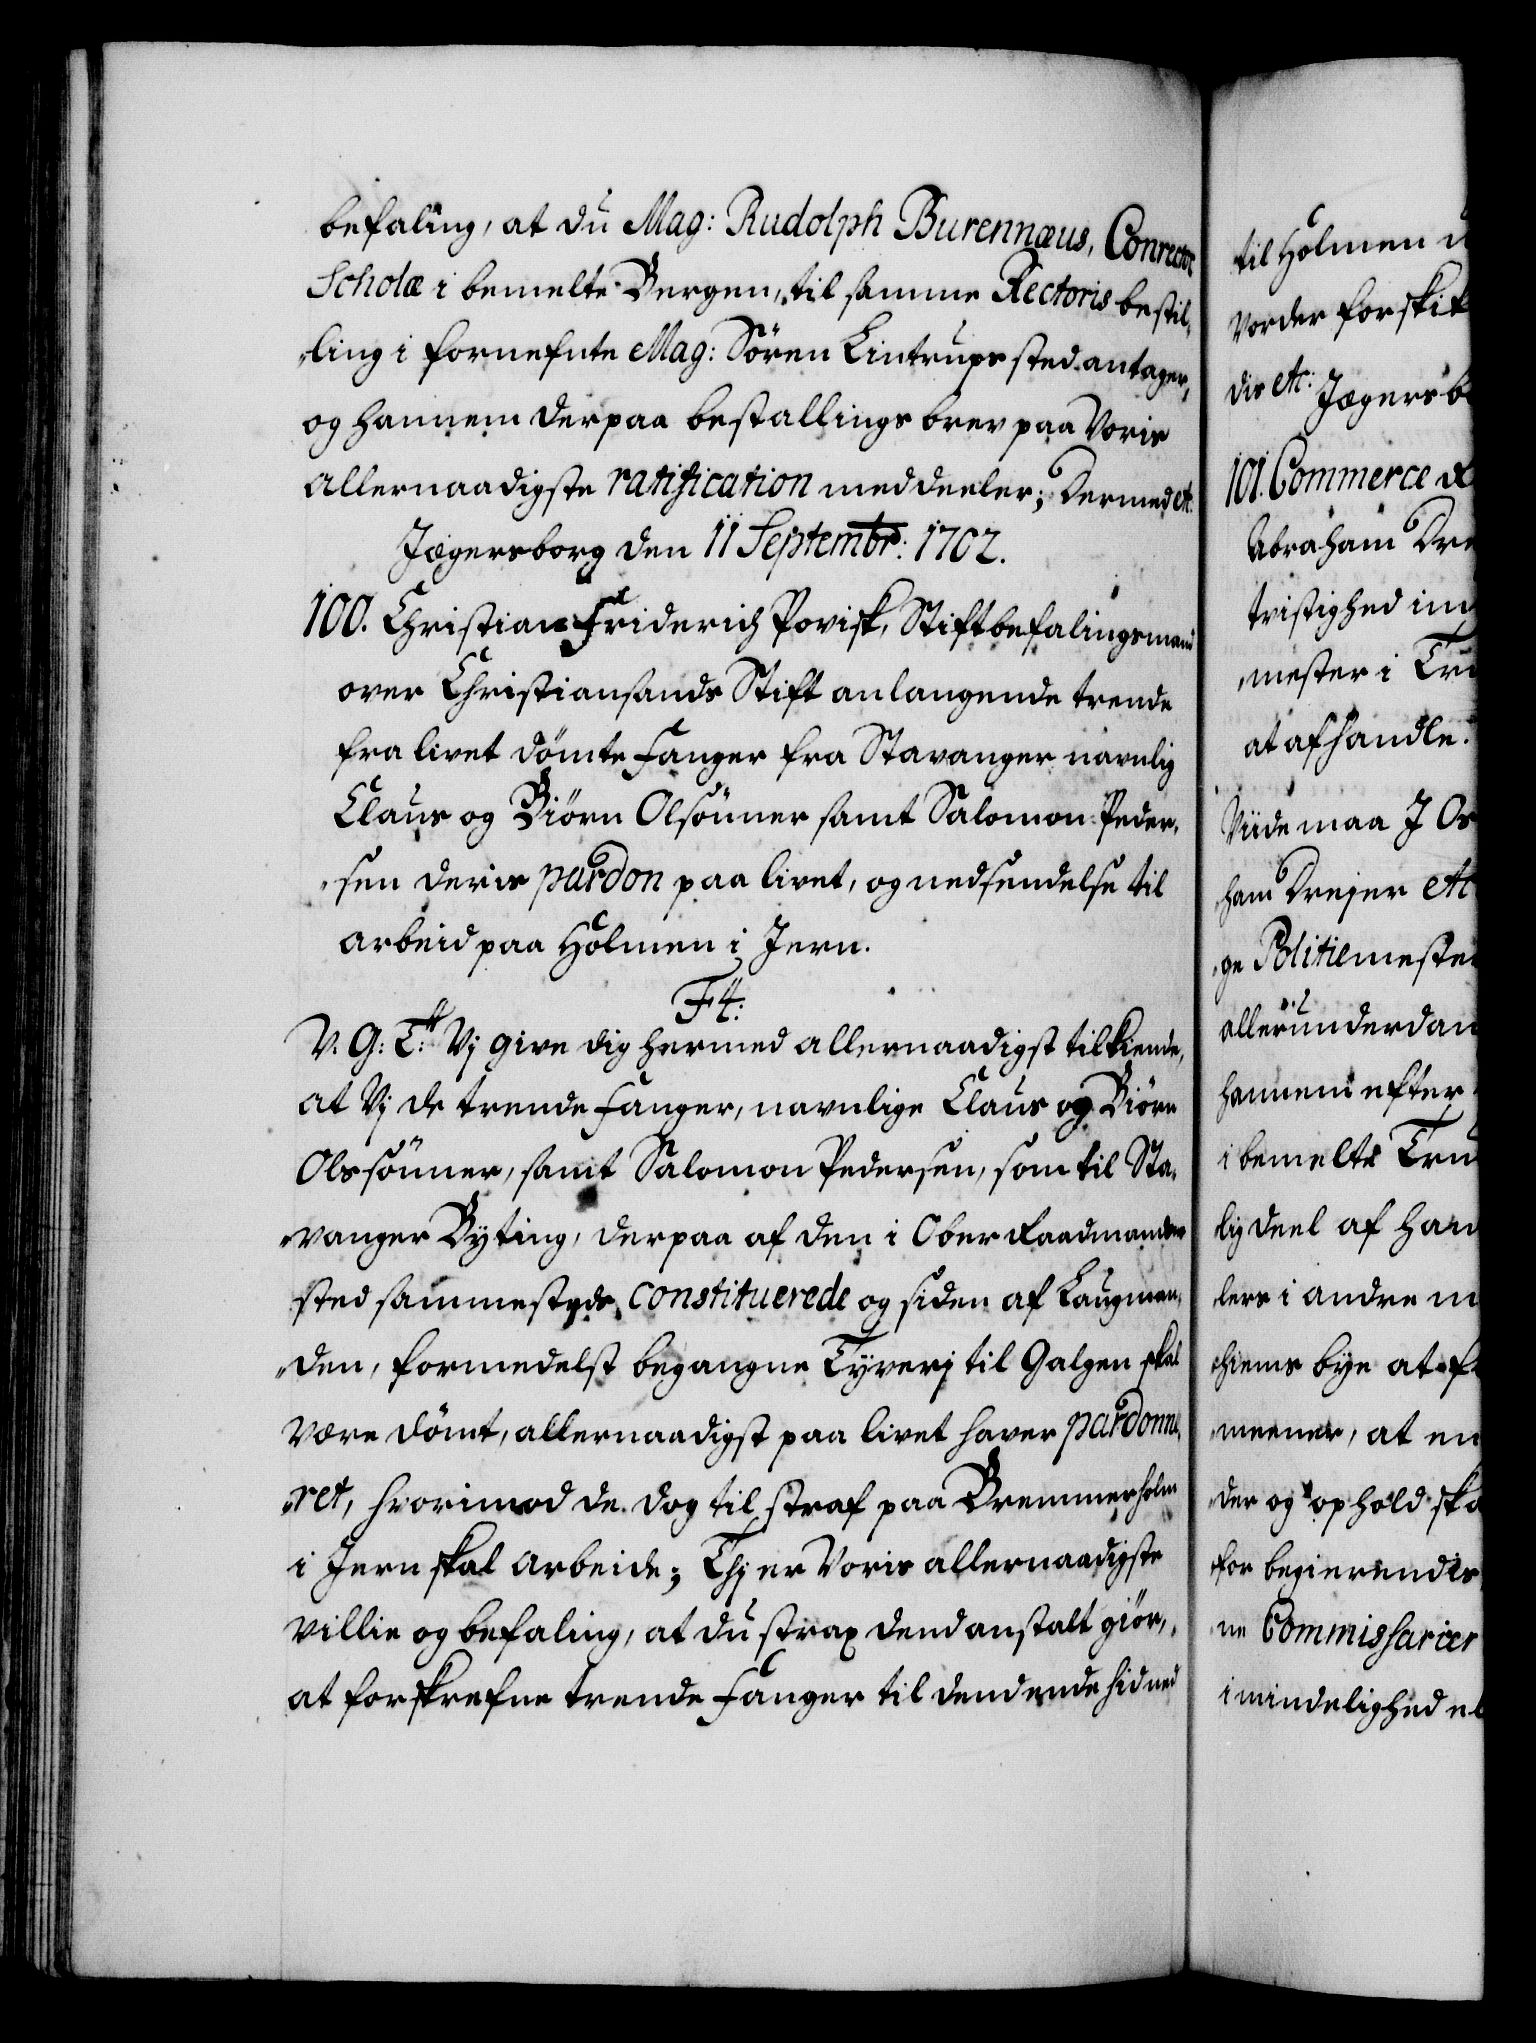 befaling, at du Mag: Rudolph Burennæus, Conrector
Scholæ i bemelte Bergen, til samme Rectoris bestil-
ling i fornefnte Mag: Sören Lintrups sted antager,
og hannem derpaa bestallings brev paa Voris
allernaadigste ratification meddeeler; Dermed etc:
Jægersborg den 11 Septembr: 1702.
100. Christian Friderich Povisk, Stiftbefalingsmand
over Christiansands Stift anlangende trende
fra livet dömte Fanger fra Stavanger navnlig
Claus og Biörn Olsönner samt Salomon Peder-
sen deris pardon paa livet, og nedsendelse til
arbeid paa Holmen i Jern.
F 4:
V. G: T: Vj give dig hermed allernaadigst tilkiende,
at Vj de trende Fanger, navnlige Claus og Biörn
Olssönner, samt Salomon Pedersen, som til Sta-
vanger Byting, derpaa af den i Ober Raadmandens
sted sammesteds constituerede og siden af Laugman-
den, formedelst begangne Tyverj til Galgen skal
være dömt, allernaadigst paa livet haver pardonne-
ret, hvorimod de dog til straf paa Bremmerholm
i Jern skal arbeide; Thj er Voris allernaadigste
villie og befaling, at du strax dend anstalt giör,
at forskrefne trende Fanger til dend ende hid ned
til Holmen
vorder forskik
dis etc: Jægersb
101. Commerce
Abraham Dre
tvistighed im
mester i Tru
at afhandle.
Viide maa J
ham Drejer etc
ge Politiemeste
allerunderdan
hannem efter
i bemelte Tru
lig deel af han
lers i andre
hiems bye at
meener, at en
der og ophold ska
for begierendes
ne Commissarier
i mindelighed